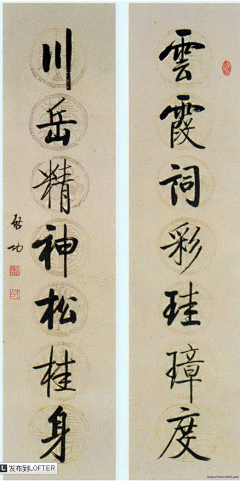 雲霞詞彩珪璋度
川岳精神松桂身
啓功
發布到LOFTER